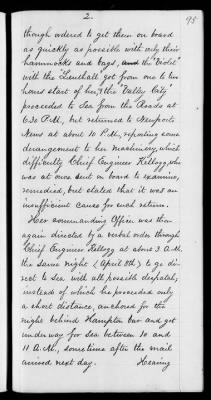 2.
95
though ordered to get them on board
as quickly as possible with only their
hammocks and bags, and the "Violet"
with the "Lenthall" got from one to ten
hours start of her, & the "Valley City"
proceeded to Sea from the Roads at
6.30 P.M., but returned to Newport
News at about 10 P.M., reporting some
derangement to her machinery, which
difficulty Chief Engineer Kellogg, who
was at once sent on board to examine,
remedied, but stated that it was an
insufficient cause for such return.
Her commanding Officer was then
again directed by a verbal order through
Chief Engineer Kellogg at about 3 A.M.
the same night (April 8th) to go di-
rect to Sea with all possible dispatch,
instead of which he proceeded only
a short distance, anchored for the
night behind Hampton bar and got
underway for Sea between 10 and
11 A.M., sometime after the mail
arrived next day. Hearing